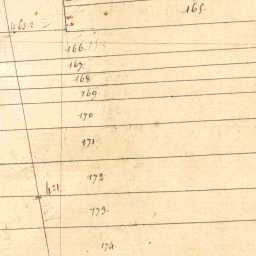 165.
166.
167.
168.
169.
170
171
172
173.
174